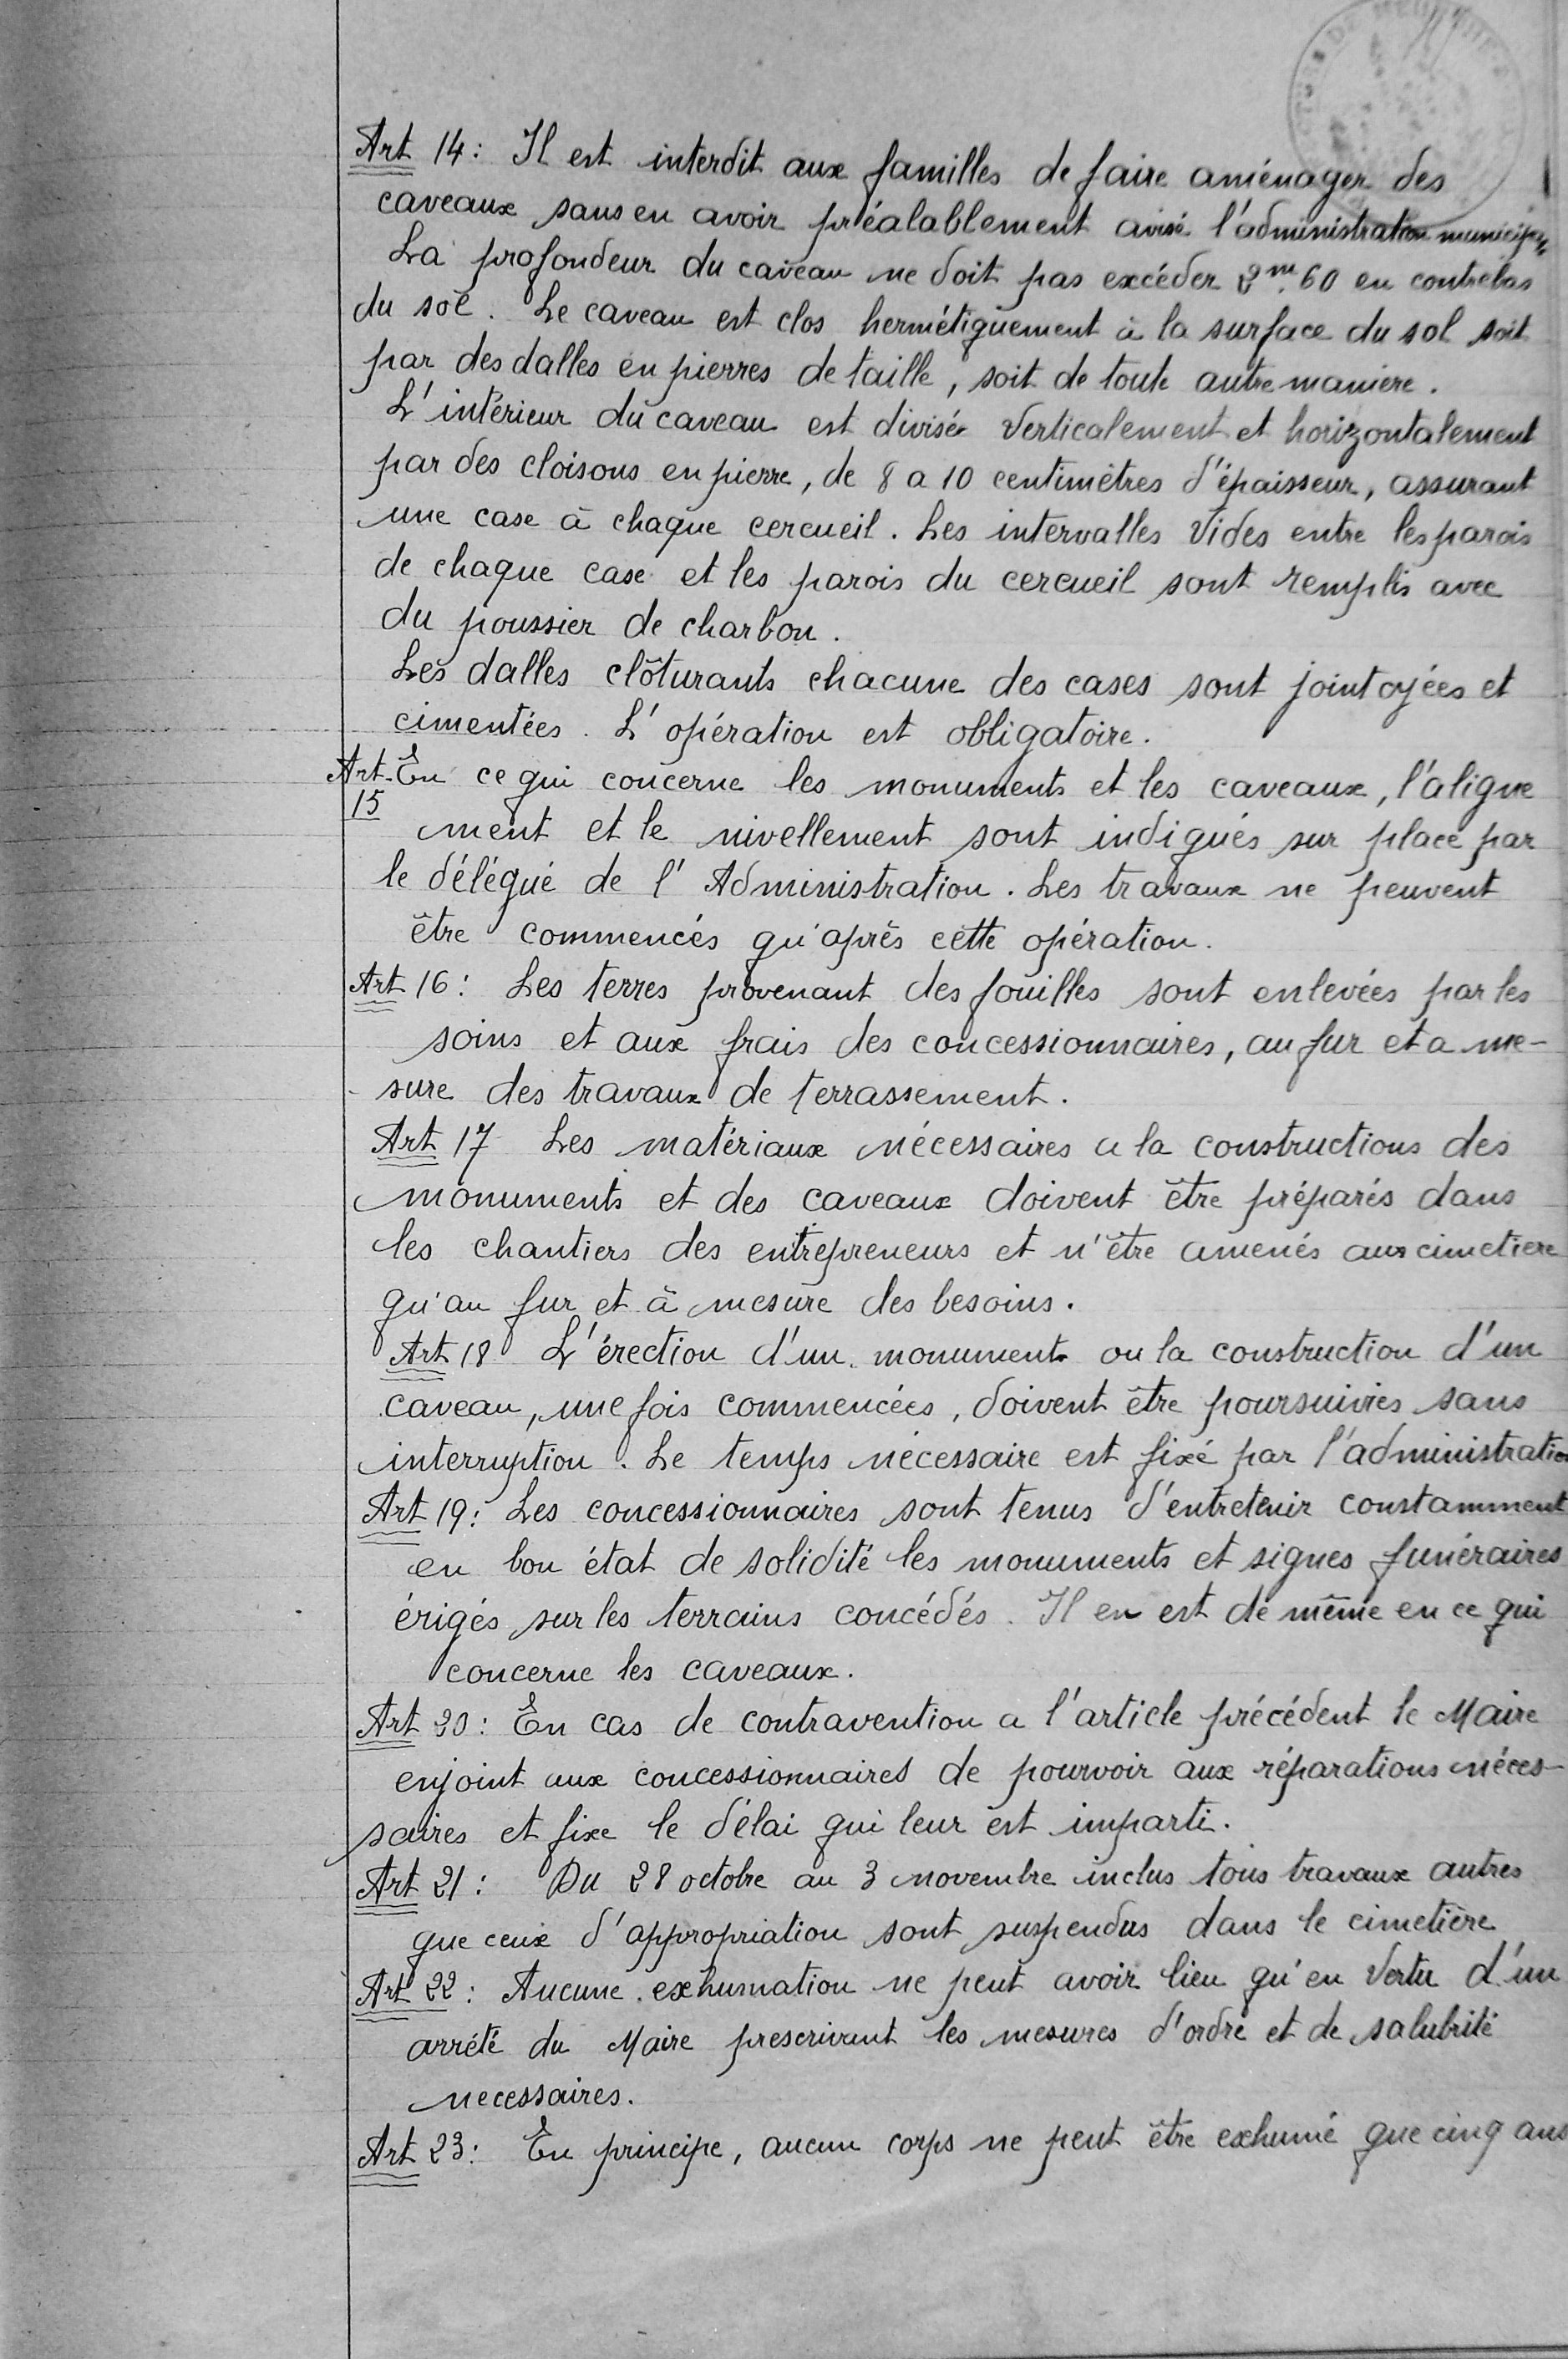 Art 14 : Il est interdit aux familles de faire aménager des
caveaux sans en avoir préalablement avisé l'administration
La profondeur du caveau ne doit pas excéder 2m.60 en contrebas
du sol. Le caveau est clos hermétiquement à la surface du sol soit
par des dalles en pierres de taille, soit de toute autre manière.
L'intérieur du caveau est divisé verticalement et horizontalement
par des cloisons en pierre, de 8 a 10 centimètres d'épaisseur, assurant
une case à chaque cercueil. Les intervalles vides entre les parois
de chaque case et les parois du cercueil sont remplis avec
du poussier de charbon.
Les dalles clôturants chacune des cases sont jointoyées et
cimentées. L'opération est obligatoire.
Art. En ce qui concerne les monuments et les caveaux, l'aligne
15
ment et le nivellement sont indiqués sur place par
le délégué de l'Administration. Les travaux ne peuvent
être commencés qu'après cette opération.
Art 16 : Les terres provenant des fouilles sont enlevées par les
soins et aux frais des concessionnaires, au fur et a me-
sure des travaux de terrassement.
Art 17 Les matériaux nécessaires a la constructions des
monuments et des caveaux doivent être préparés dans
les chantiers des entrepreneurs et n'être amenés aux cimetiere
qu'au fur et à mesure des besoins.
Art 18 L'érection d'un monument ou la construction d'un
caveau, une fois commencées, doivent être poursuivies sans
interruption. Le temps nécessaire est fixé par l'administration
Art 19 : Les concessionnaires sont tenus d'entretenir constamment
en bon état de solidité les monuments et signes funéraires
érigés sur les terrains concédés. Il en est de même en ce qui
concerne les caveaux.
Art 20 : En cas de contravention a l'article précédent le Maire
enjoint aux concessionnaires de pourvoir aux réparations néces-
saires et fixe le délai qui leur est imparti.
Art 21 : Du 28 octobre au 3 novembre inclus tous travaux autres
que ceux d'appropriation sont suspendus dans le cimetière
Art 22 : Aucune exhumation ne peut avoir lieu qu'en vertu d'un
arrété du Maire prescrivant les mesures d'ordre et de salubrité
necessaires.
Art 23 : En principe, aucun corps ne peut être exhumé que cinq ans